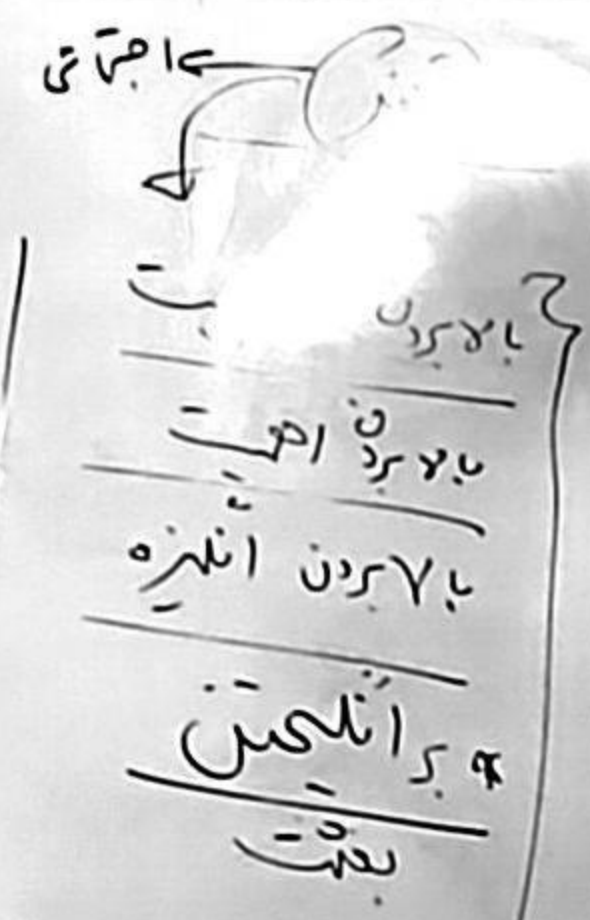 اجتماعی
بالا بردن
بالا بردن اهمیت
بالا بردن انگیزه
* برانگیختن
بعثت